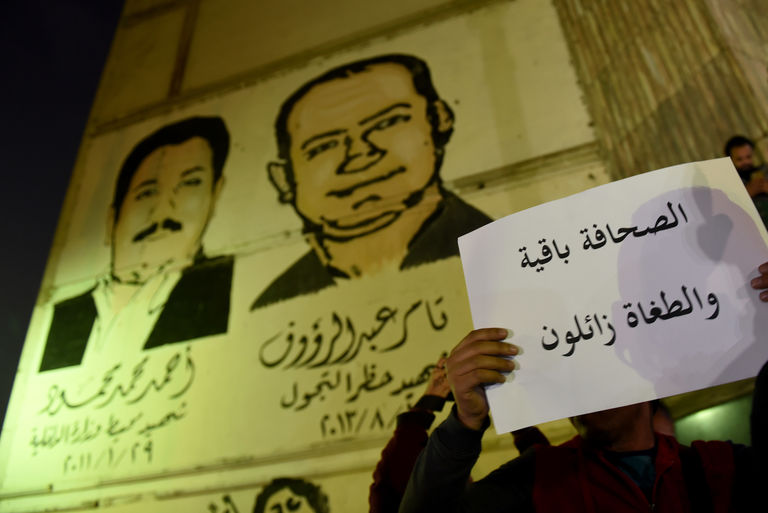 الصحافة باقية
والطغاة زائلون
تامر عبد الرؤوف
شهيد حظر التجول
٢٠١٣/٨/
أحمد محمد محمود
شهيد محيط وزارة الداخلية
٢٠١١/١/٢٩